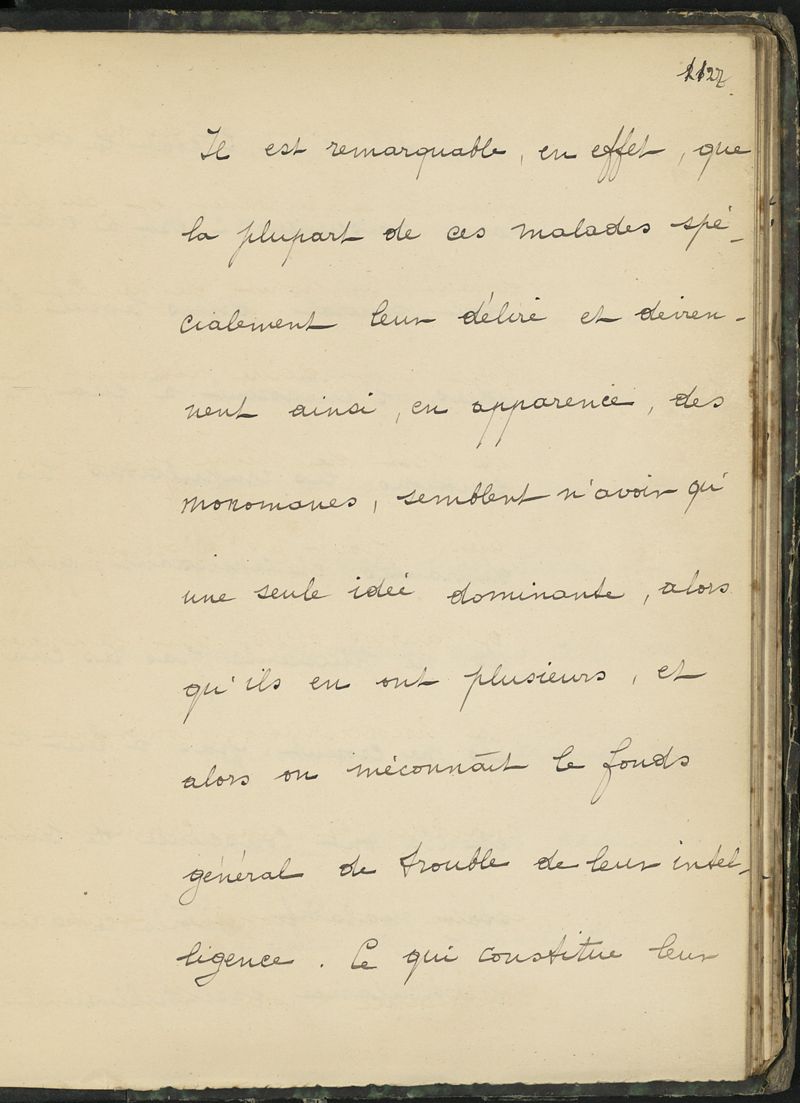 1127.
Il est remarquable, en effet, que
la plupart de ces malades spé-
cialement leur délire et devien-
nent ainsi, en apparence, des
monomanes, semblent n'avoir qu'
une seule idée dominante, alors
qu'ils en ont plusieurs, et
alors on méconnaît le fonds
général de trouble de leur intel-
ligence. Ce qui constitue leur